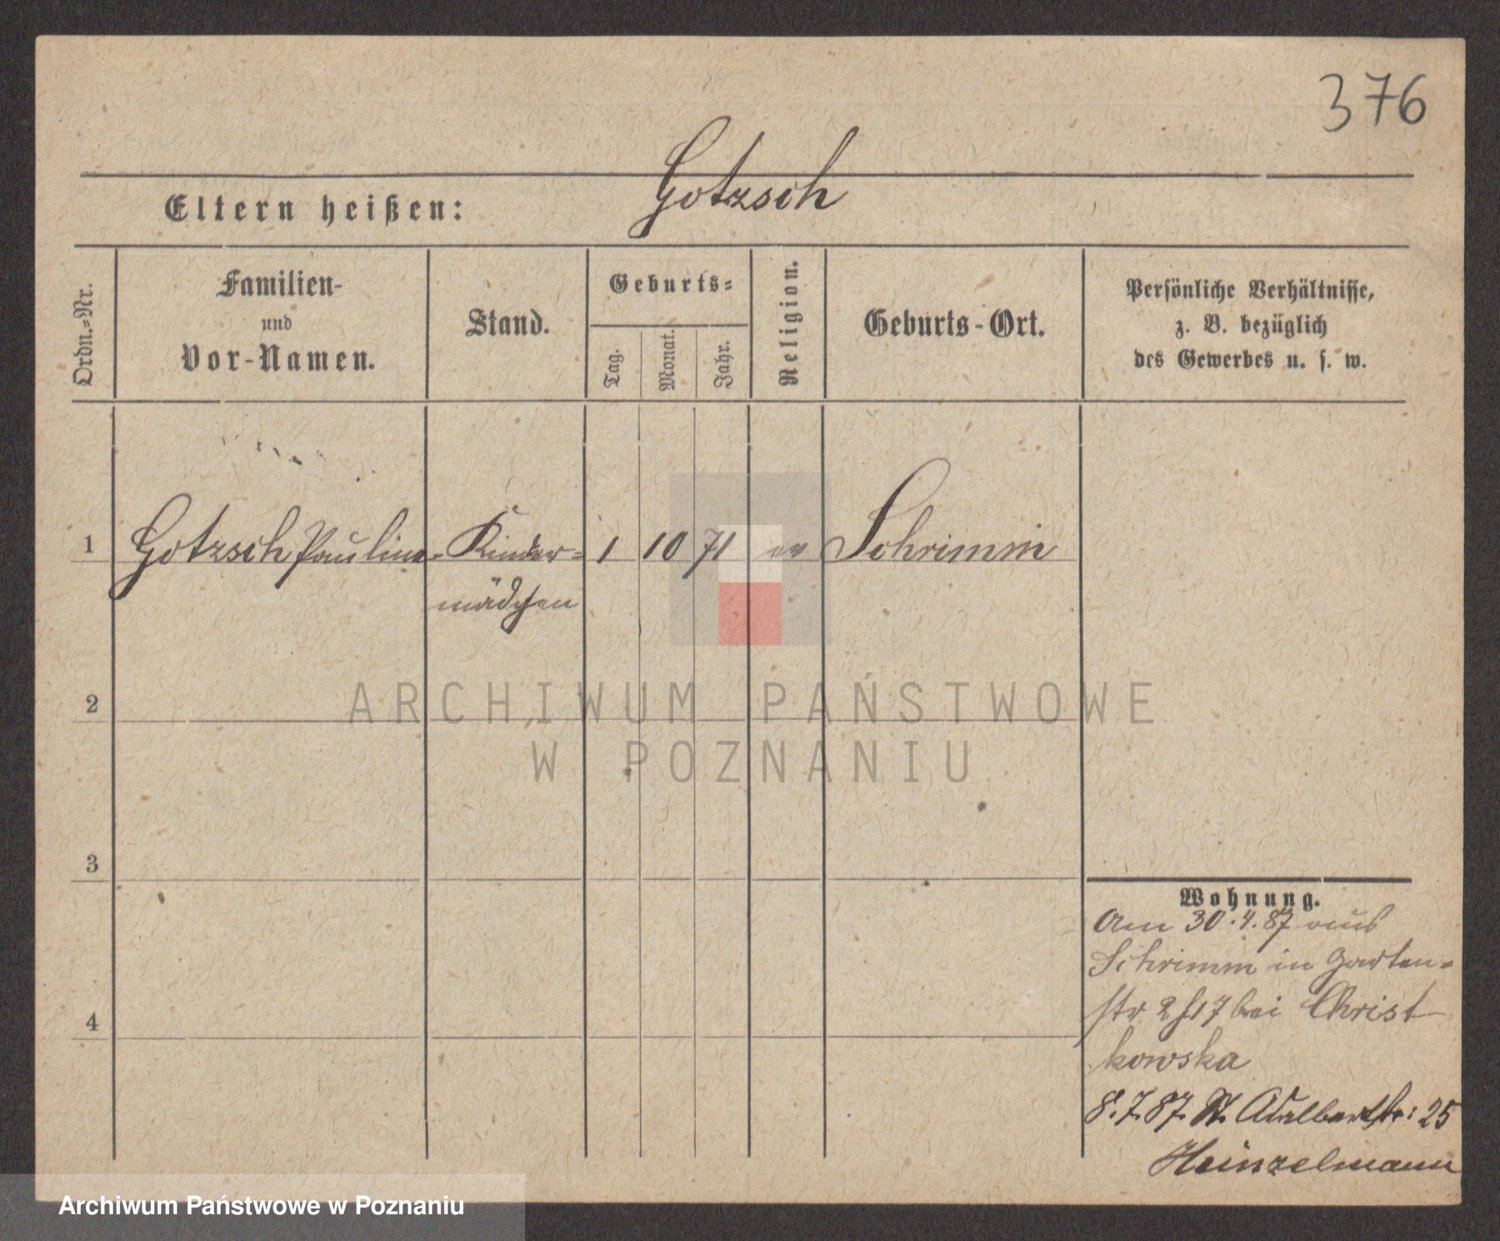 376
Gotzsch
Eltern heißen:
Ordn.=Nr.
Familien-
und
Vor-Namen.
Stand.
Geburts=
Tag.
Monat.
Jahr.
Religion.
Geburts-Ort.
Persönliche Verhältnisse,
z. B. bezüglich
des Gewerbes u. s. w.
1 Gotzsch Pauline Kinder= 1 10 71 ev Schrimm
mädchen
2
3
4
Wohnung.
Am 30.4.87 aus
Schrimm in Garten=
str 2 17 bei Christ
kowska
8.7.87. St. Adalbertstr: 25
Heinzelmann
ARCHIWUM PAŃSTWOWE
W POZNANIU
Archiwum Państwowe w Poznaniu